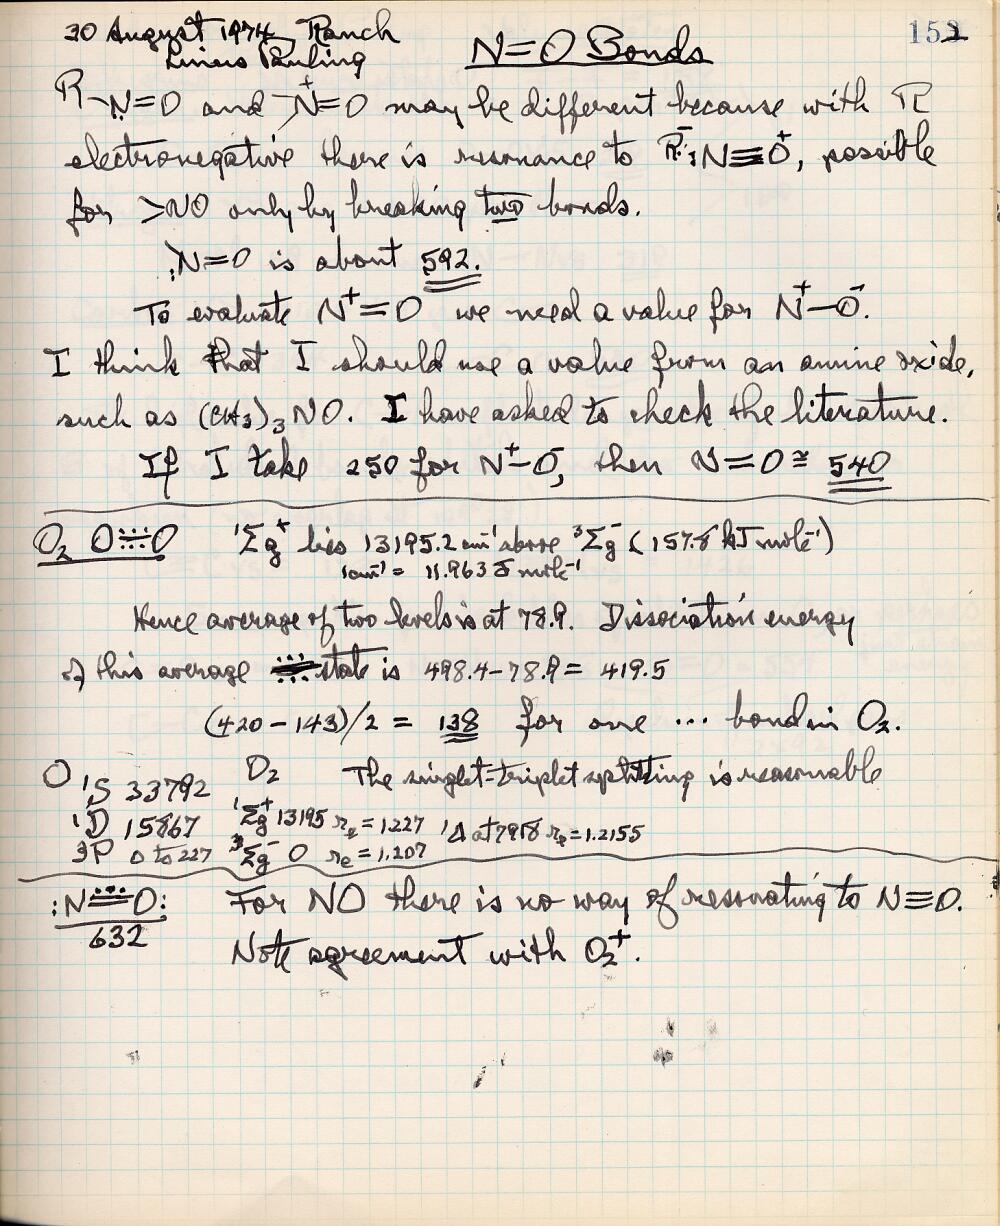 30 August 1974 Ranch
152
Linus Pauling
N=O Bonds
R–N̈=O and >N⁺=O may be different because with R
electronegative there is resonance to R:⁻ :N≡O⁺, possible
for >NO only by breaking two bonds.
:N=O is about 592.
To evaluate N⁺=O we need a value for N⁺–O⁻.
I think that I should use a value from an amine oxide,
such as (CH3)3NO. I have asked to check the literature.
If I take 250 for N⁺–O⁻, then N=O ≅ 540
O2 O⋯O ¹Σg⁺ lies 13195.2 cm⁻¹ above ³Σg⁻ (157.8 kJ mole⁻¹)
1cm⁻¹ = 11.963 J mole⁻¹
Hence average of two levels is at 78.9. Dissociation energy
of this average state is 498.4–78.9 = 419.5
(420–143)/2 = 138 for one ⋯ bond in O2.
O O2 The singlet-triplet splitting is reasonable
¹S 33792
¹D 15867 ¹Σg⁺ 13195 re = 1.227 ¹Δ at 7918 re = 1.2155
³P 0 to 227 ³Σg⁻ 0 re = 1.207
:N⋯O: For NO there is no way of resonating to N≡O.
632
Note agreement with O2⁺.